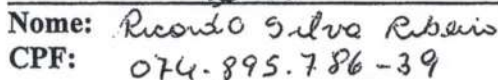 Nome: Ricardo Silva Ribeiro
CPF: 074.895.786-39